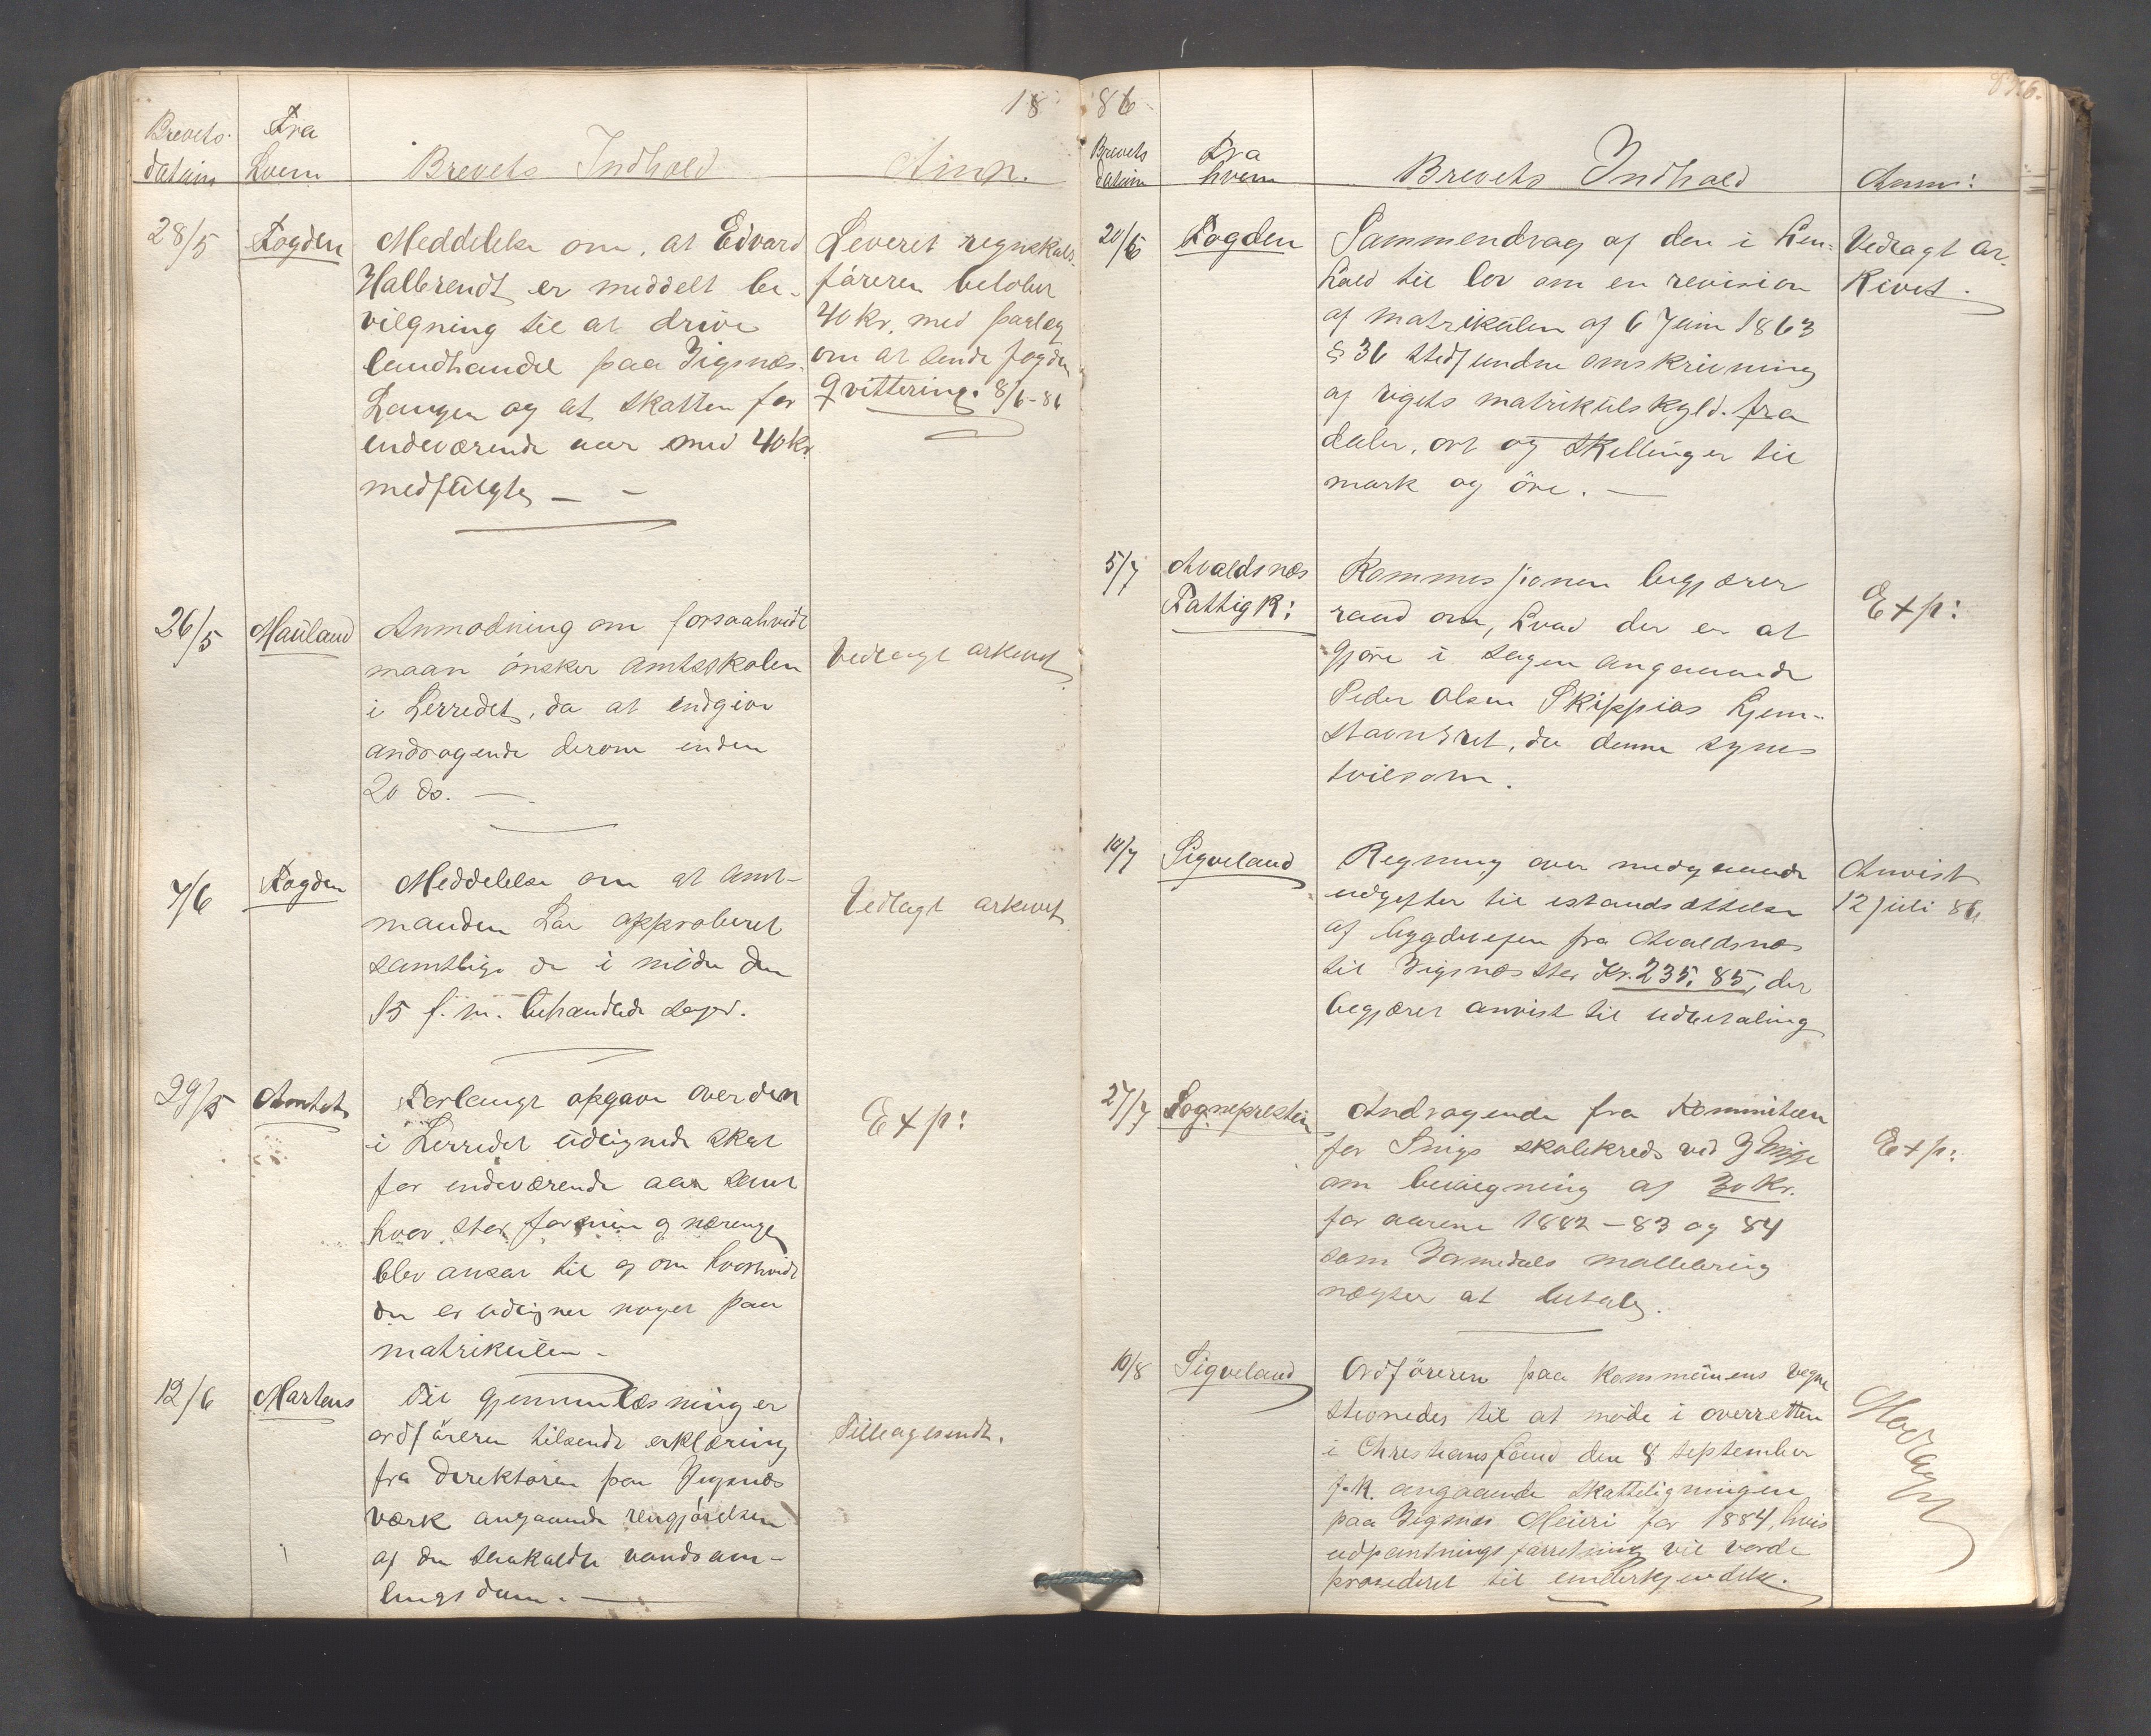 18
Brevets
datum
Fra
hvem
Brevets Indhold
Anm.
28/5
Fogden
Meddelelse om, at Edvard
Halbrendt er meddelt be-
vilgning til at drive
landhandel paa Vigsnes-
Langen og at skatten for
indeværende aar med 40 kr.
medfulgte —
Leveret regnskabs-
føreren beløbet
40 kr. med paalæg
om at sende fogden
qvittering. 8/6-86
26/5
Mauland
Anmodning om forsaahvidt
maan ønsker amtsskolen
i herredet, da at indgive
andragende derom inden
20 ds. —
Vedlagt arkivet
7/6
Fogden
Meddelelse om at amt-
manden har approberet
samtlige de i møde den
15 f. m. behandlede sager.
Vedlagt arkivet
29/5
Amtet
Forlangt opgave over den
i herredet udlignede skat
for indeværende aar samt
hvor stor formue og næring
blev ansat til og om hvorvidt
der er udlignet noget paa
matrikulen -
Exp:
12/6
Martens
Til gjennemlæsning er
ordføreren tilsendt erklæring
fra direktøren paa Vigsnes
værk angaaende rengjørelsen
af den saakaldte vandsam-
lings dam. —
Tilbagesendt.
86
Brevets
datum
Fra
hvem
Brevets Indhold
Anm:
20/6
Fogden
Sammendrag af den i hen-
hold til lov om en revision
af matrikulen af 6 Juni 1863
§ 36 stedfundne omskrivning
af rigets matrikulskyld fra
daler, ort og skillinger til
mark og øre. —
Vedlagt ar-
kivet.
5/7
Avaldsnes
Fattigk:
Kommissionen begjærer
raad om, hvad der er at
gjøre i sagen angaaende
Peder Olsen Skippias hjem-
stavnsret, da denne synes
tvilsom.
Exp:
10/7
Sigveland
Regning over medgaaende
udgifter til istandsættelse
af bygdeveien fra Avaldsnes
til Vigsnes stor Kr. 235,85, der
begjæres anvist til udbetaling
Anvist
12 juli 86
27/7
Sognepresten
Andragende fra Kommiteen
for Snigs skolekreds ved
om bevilgning af 30 Kr.
for aarene 1882 - 83 og 84
som
nægter at betale.
Exp:
10/8
Sigveland
Ordføreren paa kommunens vegne
stevnedes til at møde i overretten
i Christianssand den 8 september
f. k. angaaende skatteligningen
paa Vigsnes Meieri for 1884, hvis
udpantningsforretning vil vorde
procederet til underkjendelse.
Modtaget